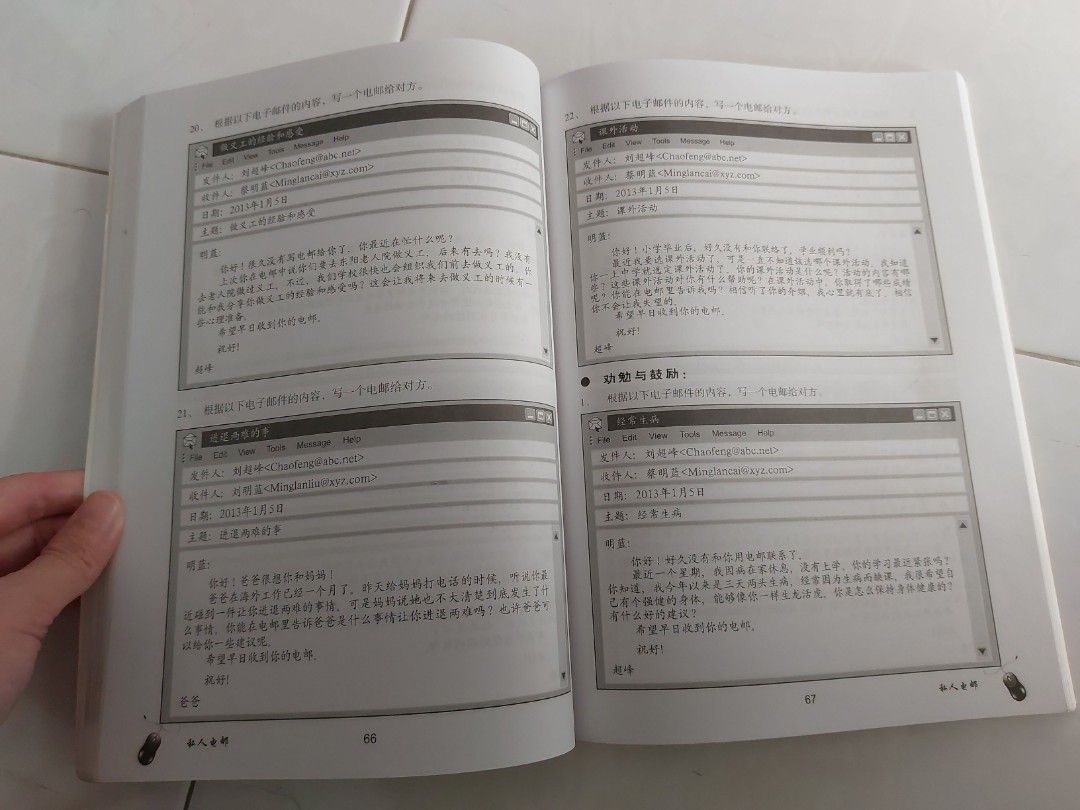 20、 根据以下电子邮件的内容，写一个电邮给对方。
做义工的经验和感受
File Edit View Tools Message Help
发件人：刘超峰<Chaofeng@abc.net>
收件人：蔡明蓝<Minglancai@xyz.com>
日期：2013年1月5日
主题：做义工的经验和感受
明蓝：
你好！很久没有写电邮给你了，你最近在忙什么呢？
上次你在电邮中说你们要去东阳老人院做义工，后来有去吗？我没有
去老人院做过义工，不过，我们学校很快也会组织我们前去做义工的。你
能和我分享你做义工的经验和感受吗？这会让我将来去做义工的时候有一
些心理准备。
希望早日收到你的电邮。
祝好！
超峰
21、 根据以下电子邮件的内容，写一个电邮给对方。
进退两难的事
File Edit View Tools Message Help
发件人：刘超峰<Chaofeng@abc.net>
收件人：刘明蓝<Minglanliu@xyz.com>
日期：2013年1月5日
主题：进退两难的事
明蓝：
你好！爸爸很想你和妈妈！
爸爸在海外工作已经一个月了。昨天给妈妈打电话的时候，听说你最
近碰到一件让你进退两难的事情，可是妈妈说她也不大清楚到底发生了什
么事情。你能在电邮里告诉爸爸是什么事情让你进退两难吗？也许爸爸可
以给你一些建议呢。
希望早日收到你的电邮。
祝好！
爸爸
私人电邮
66
22、 根据以下电子邮件的内容，写一个电邮给对方。
课外活动
File Edit View Tools Message Help
发件人：刘超峰<Chaofeng@abc.net>
收件人：蔡明蓝<Minglancai@xyz.com>
日期：2013年1月5日
主题：课外活动
明蓝：
你好！小学毕业后，好久没有和你联络了，学业顺利吗？
最近我要选课外活动了，可是一直不知道该选哪个课外活动。我知道
你一上中学就选定课外活动了，你的课外活动是什么呢？活动的内容有哪
些？这些课外活动对你有什么帮助呢？在课外活动中，你取得了哪些成绩
呢？你能在电邮里告诉我吗？相信听了你的介绍，我心里就有底了。相信
你不会让我失望的。
希望早日收到你的电邮。
祝好！
超峰
● 劝勉与鼓励：
1、 根据以下电子邮件的内容，写一个电邮给对方。
经常生病
File Edit View Tools Message Help
发件人：刘超峰<Chaofeng@abc.net>
收件人：蔡明蓝<Minglancai@xyz.com>
日期：2013年1月5日
主题：经常生病
明蓝：
你好！好久没有和你用电邮联系了。
最近一个星期，我因病在家休息，没有上学。你的学习最近紧张吗？
你知道，我今年以来是三天两头生病，经常因为生病而缺课，我很希望自
己有个强健的身体，能够像你一样生龙活虎。你是怎么保持身体健康的？
有什么好的建议？
希望早日收到你的电邮。
祝好！
超峰
67
私人电邮